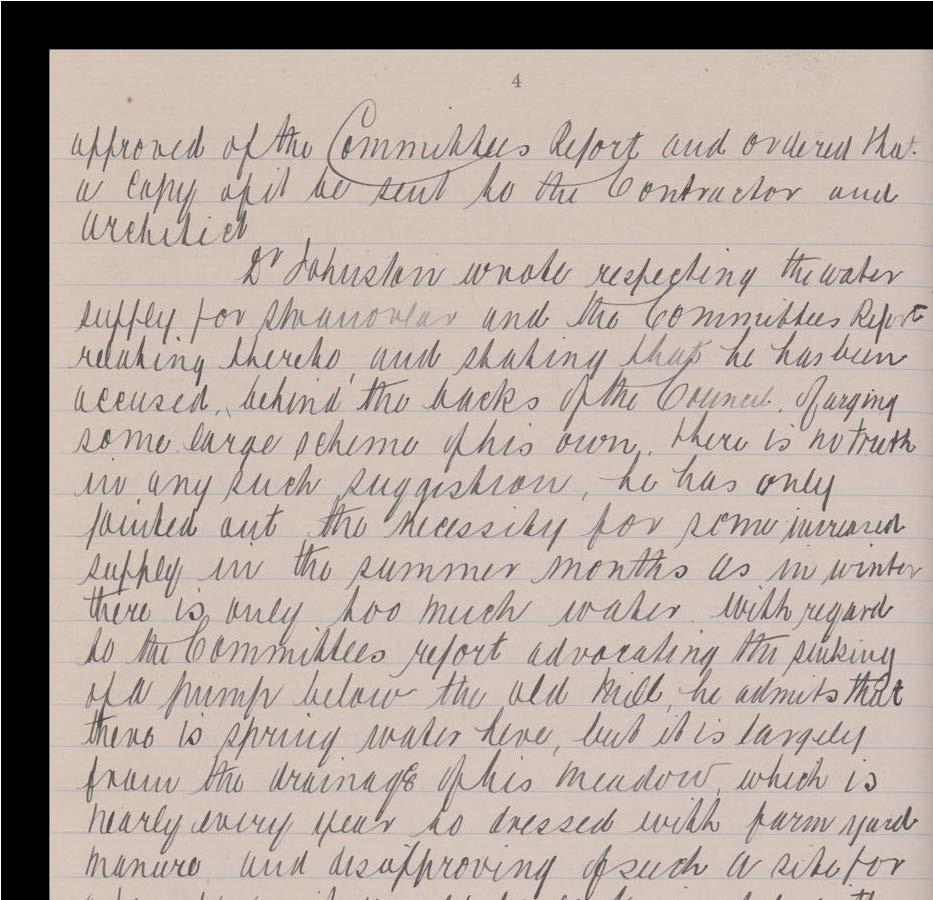 4
approved of the Committees Report and ordered that
a Copy of it be sent to the Contractor and
Architect
Dr Johnston wrote respecting the water
supply for Stranorlar and the Committees Report
relating thereto, and stating that he has been
accused, behind the backs of the Council, of urging
some large scheme of his own, there is no truth
in any such suggestion, he has only
pointed out the necessity for some increased
supply in the summer months as in winter
there is only too much water. With regard
to the Committees report advocating the sinking
of a pump below the old Mill, he admits that
there is spring water here, but it is largely
from the drainage of his meadow, which is
nearly every year to dressed with farm yard
manure, and disapproving of such a site for